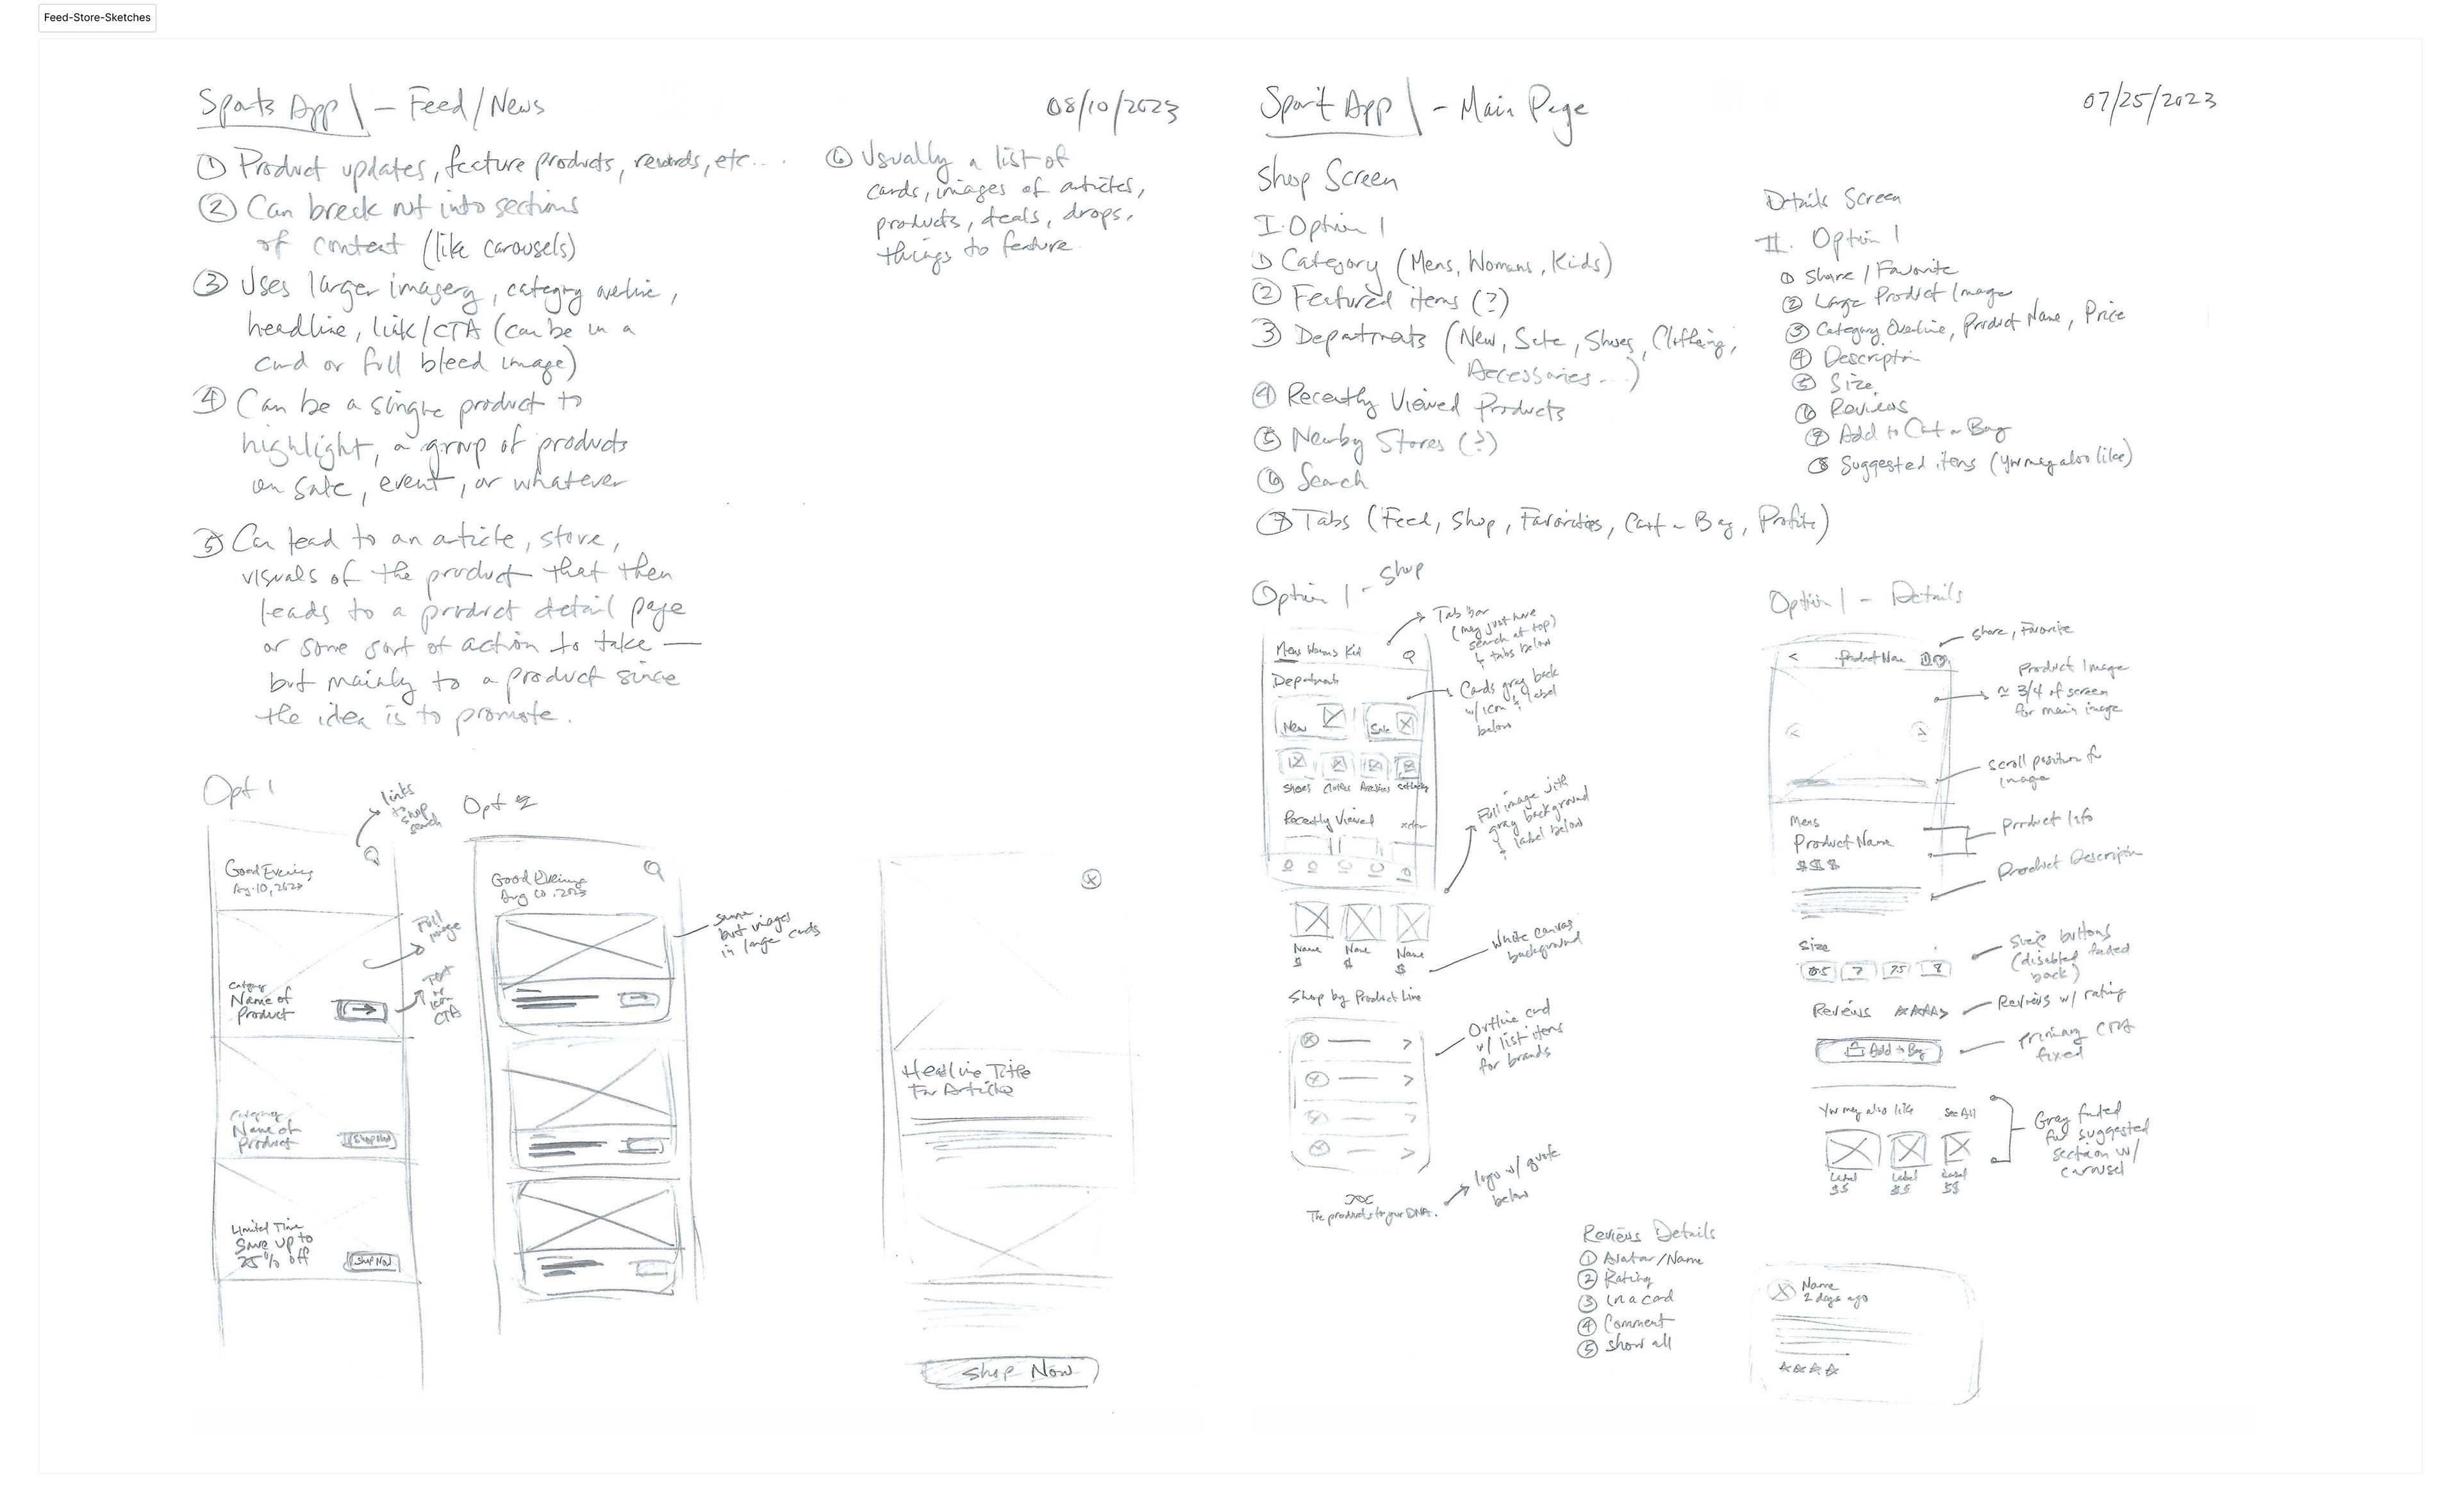 Feed-Store-Sketches
Sports App - Feed/News
08/10/2023
① Product updates, feature products, rewards, etc...
② Can break out into sections
of content (like carousels)
③ Uses larger imagery, category overline,
headline, link/CTA (can be in a
card or full bleed image)
④ Can be a single product to
highlight, a group of products
on sale, event, or whatever
⑤ Can lead to an article, store,
visuals of the product that then
leads to a product detail page
or some sort of action to take —
but mainly to a product since
the idea is to promote.
⑥ Usually a list of
cards, images of articles,
products, deals, drops,
things to feature.
Opt 1
links
to shop
search
Good Evening
Aug. 10, 2023
Full
image
Category
Name of
Product
Text
or
icon
CTA
Category
Name of
Product
Shop Now
Limited Time
Save up to
25% off
Shop Now
Opt 2
Good Evening
Aug 10, 2023
same
but images
in large cards
Headline Title
For Article
Shop Now
Sport App - Main Page
07/25/2023
Shop Screen
I. Option 1
① Category (Mens, Womans, Kids)
② Featured items (?)
③ Departments (New, Sale, Shoes, Clothing,
Accessories...)
④ Recently Viewed Products
⑤ Nearby Stores (?)
⑥ Search
⑦ Tabs (Feed, Shop, Favorites, Cart or Bag, Profile)
Details Screen
II. Option 1
① Share / Favorite
② Large Product Image
③ Category Overline, Product Name, Price
④ Description
⑤ Size
⑥ Reviews
⑦ Add to Cart or Bag
⑧ Suggested items (You may also like)
Option 1 - Shop
Tab bar
(may just have
search at top)
& tabs below
Mens Womens Kid
Departments
Cards gray back
w/ icon & label
below
New
Sale
Shoes
Clothes
Recently Viewed
Full image with
gray background
& label below
Name
$
Name
$
Name
$
White canvas
background
Shop by Product Line
Outline card
w/ list items
for brands
logo w/ quote
below
The products to your DNA.
Option 1 - Details
Share, Favorite
Product Name
Product Image
≈ 3/4 of screen
for main image
Scroll position for
image
Mens
Product Name
$$$
Product Info
Product Description
Size
6.5
7
7.5
8
Size buttons
(disabled faded
back)
Reviews
Reviews w/ rating
Add to Bag
Primary CTA
fixed
You may also like
See All
Label
$$
Label
$$
Label
$$
Gray faded
for suggested
section w/
carousel
Reviews Details
① Avatar/Name
② Rating
③ In a card
④ Comment
⑤ Show all
Name
2 days ago